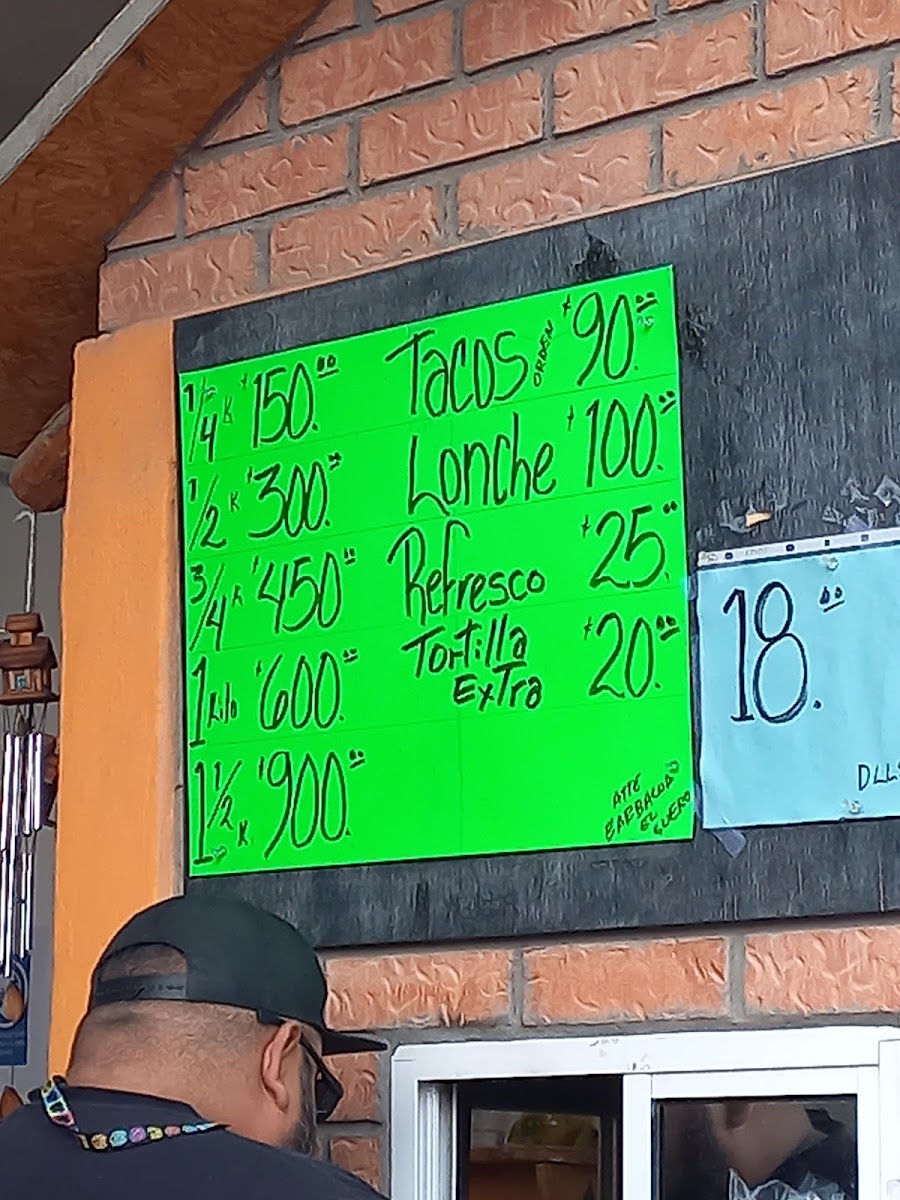 1/4 K $150.00
1/2 K $300.00
3/4 K $450.00
1 Kilo $600.00
1 1/2 K. $900.00
Tacos ORDEN $90.00
Lonche $100.00
Refresco $25.00
Tortilla
Extra $20.00
ATTE
BARBACOA
EL
GUERO
18.00
DLLS